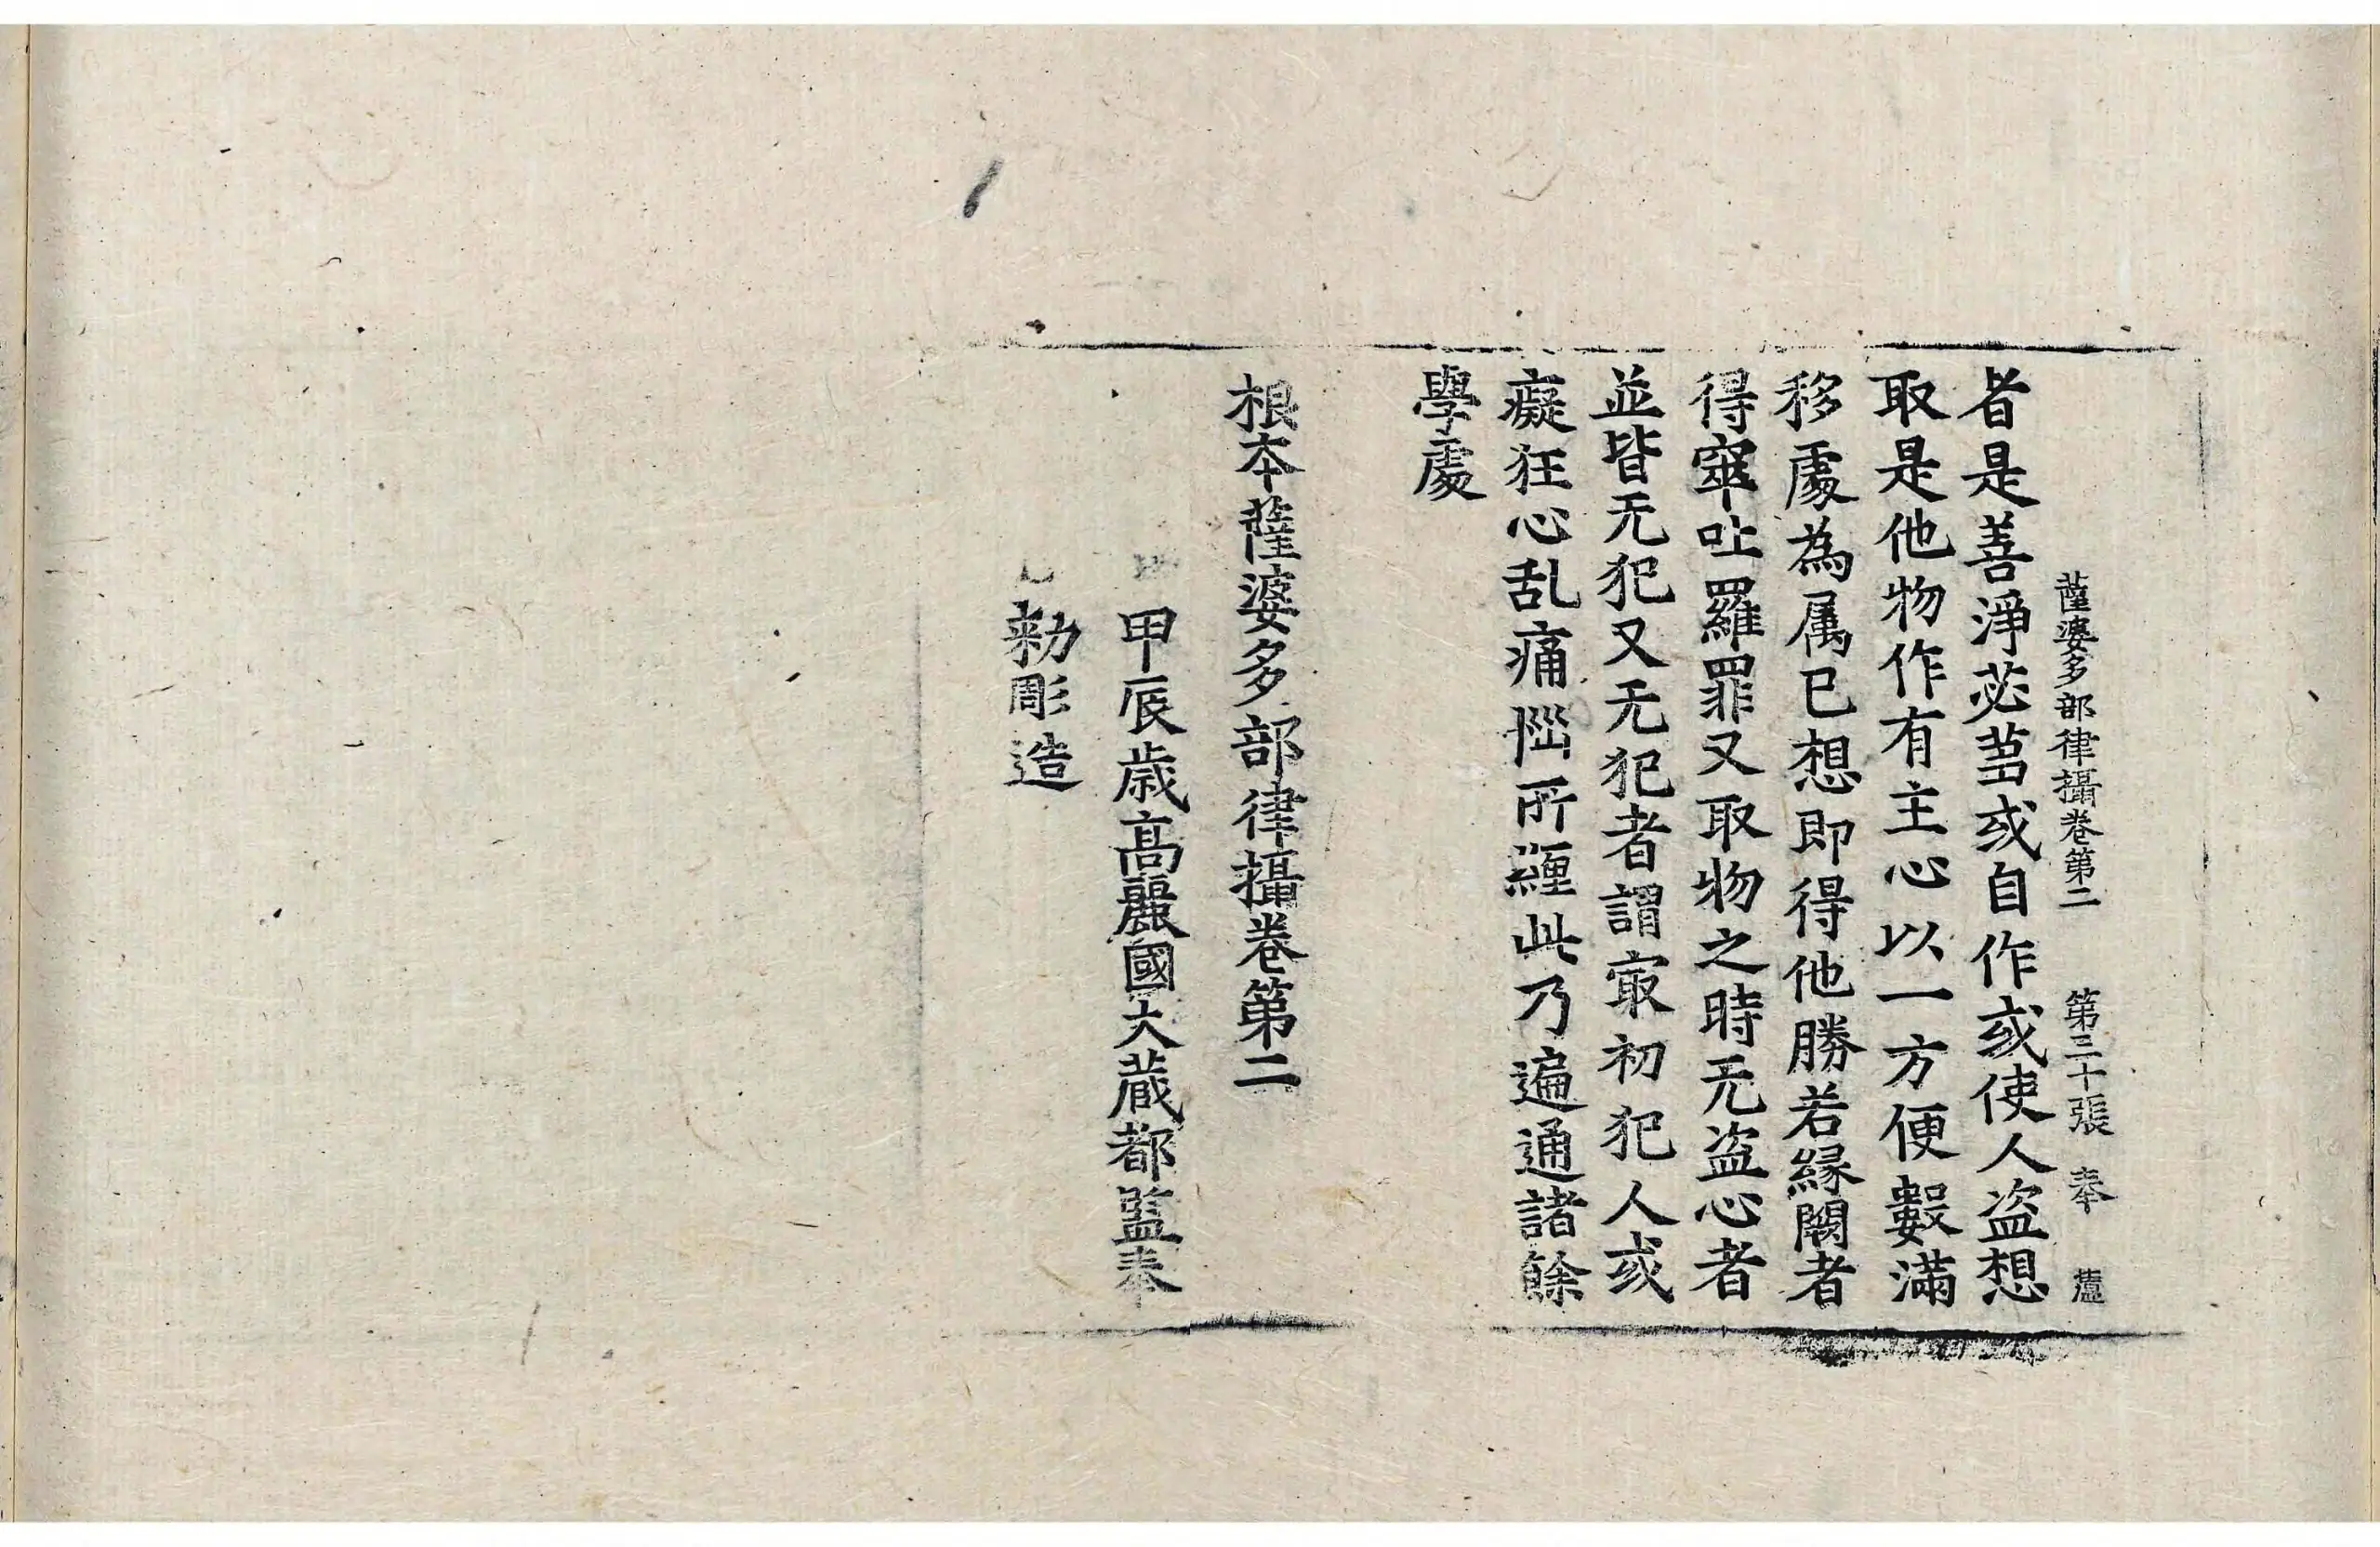 薩婆多部律攝卷第二 第三十張 奉
者是善淨苾芻或自作或使人盜想
取是他物作有主心以一方便數滿
移處為属已想即得他勝若緣闕者
得窣吐羅罪又取物之時无盜心者
並皆无犯又无犯者謂㝡初犯人或
癡狂心乱痛惱所纏此乃遍通諸餘
學處
根本薩婆多部律攝卷第二
甲辰歲高麗國大藏都監奉
勑彫造